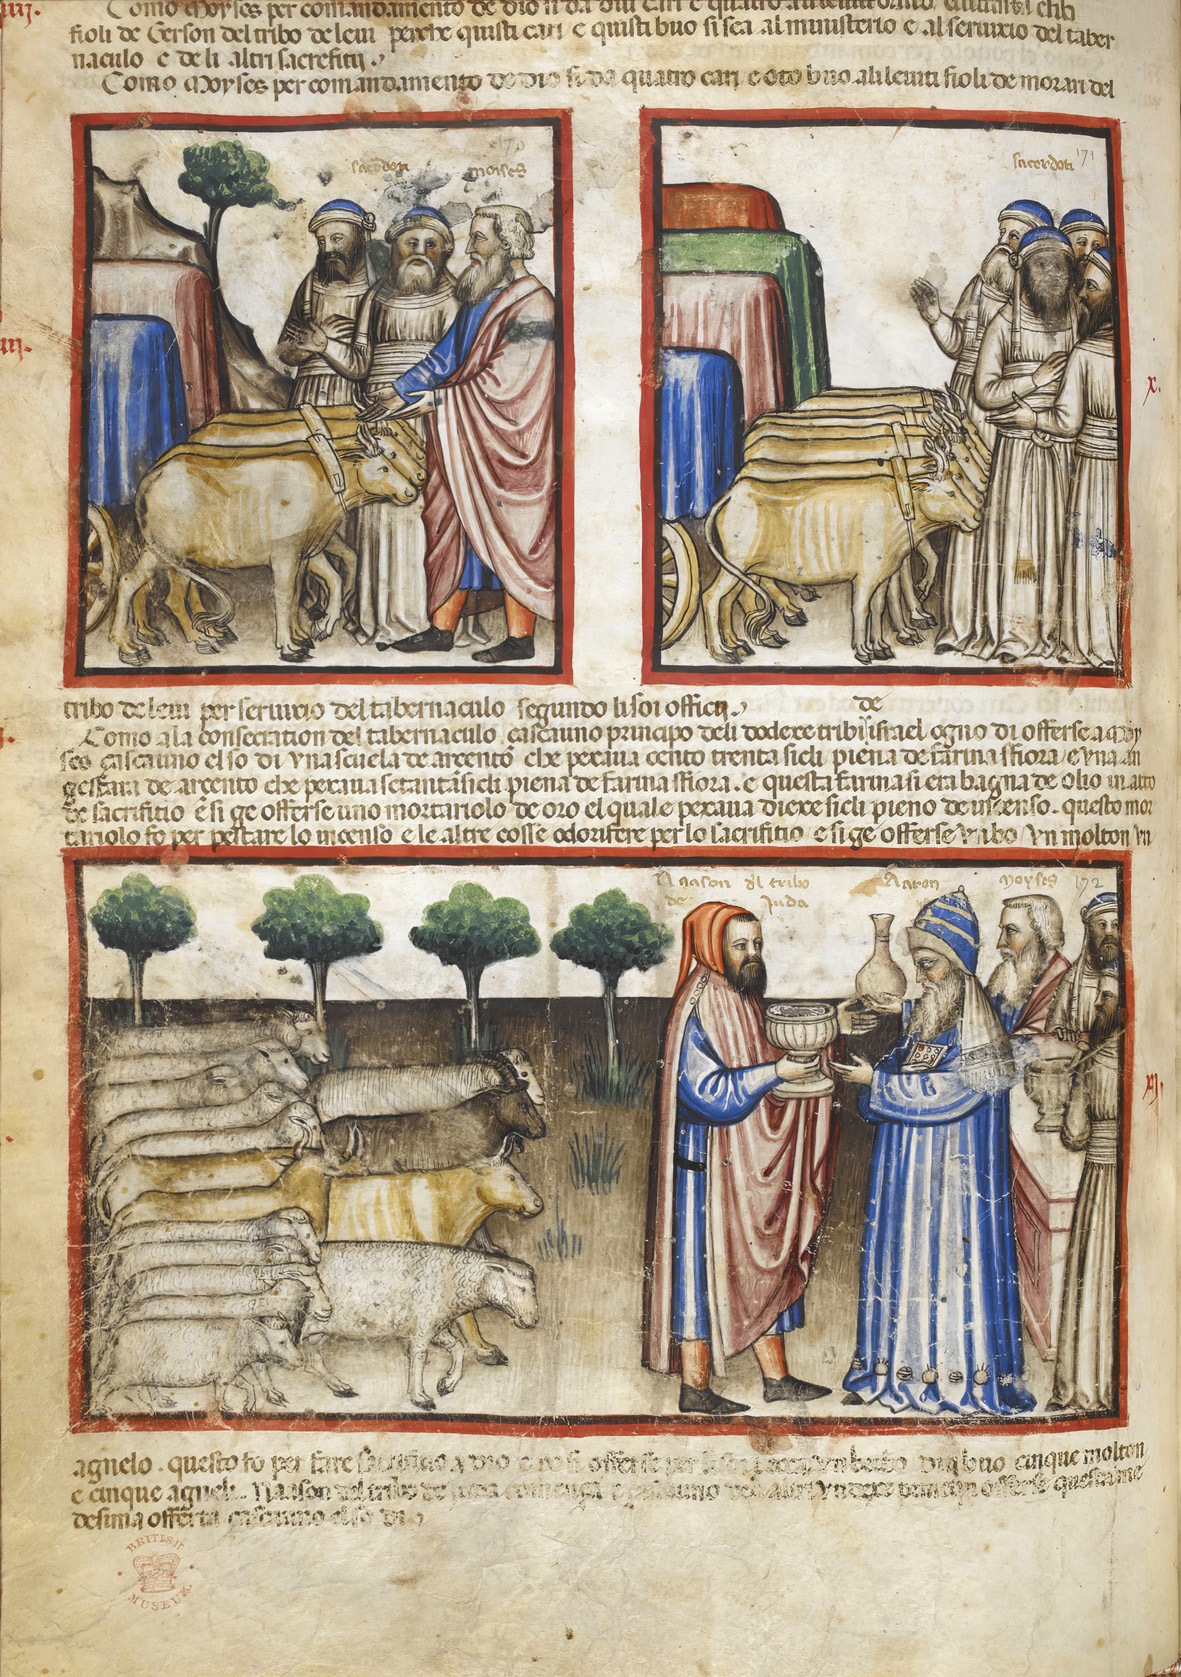 Como Moyses per comandamento de dio
fioli de Gerson del tribo de leui perche quisti cari e quisti buo si sea al ministerio e al seruixio del taber
naculo e de li altri sacrefitij
Como Moyses per comandamento de dio si da quatro cari e oto buo ali leuiti fioli de morari del
sacerdoti moises
170
sacerdoti 171
x.
tribo de leui per seruixio del tabernaculo segundo li soi officij
de
Como a la consecration del tabernaculo cascauno principo deli dodexe tribi israel ogno di offerse a Moy
ses cascauno el so di vna scuela de arcento che pexaua cento trenta sicli piena de farina sfiora e vna in
gestara de arcento che pexaua setanta sicli piena de farina sfiora e questa farina si era bagna de olio in atto
de sacrifitio e si ge offerse uno mortariolo de oro el quale pexaua diexe sicli pieno de incenso questo mor
tariolo fo per pestare lo incenso e le altre cosse odorifere per lo sacrifitio e si ge offerse vn bo vn molton vn
Naason del tribo
de Juda
Aaron Moyses 172
xj.
agnelo questo fo per fare sacrifitio a dio e cosi offerse per duo buo cinque molton
e cinque agneli Naason del tribo de Juda començà e offerse questa me
desima offerta cascauno el so di
BRITISH
MUSEUM